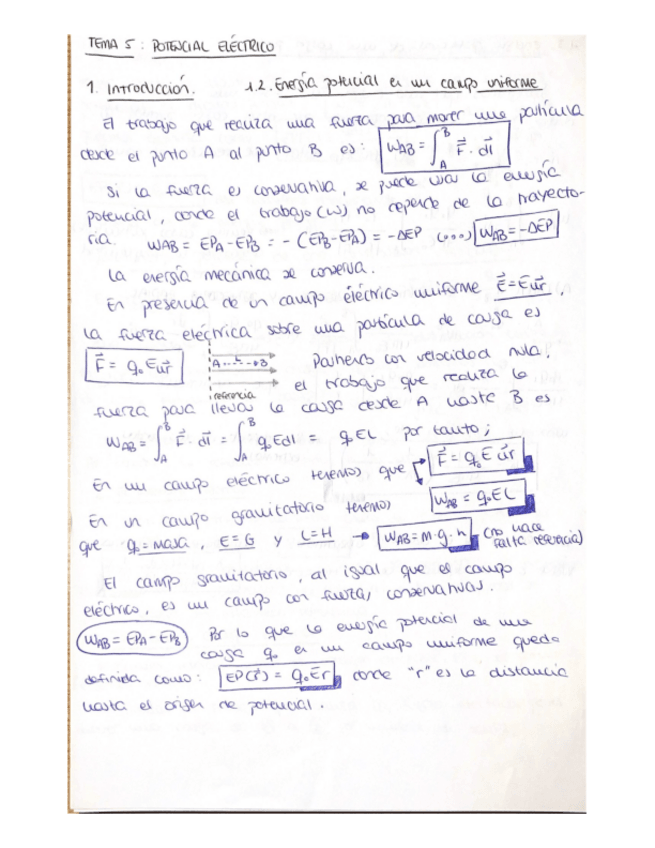 TEMA 5: POTENCIAL ELÉCTRICO
1. Introducción. 1.2. Energía potencial en un campo uniforme
El trabajo que realiza una fuerza para mover una partícula
desde el punto A al punto B es: W_AB = ∫_A^B F⃗ · dl⃗
Si la fuerza es conservativa, se puede usar la energía
potencial, donde el trabajo (W) no depende de la trayecto-
ria. W_AB = EP_A - EP_B = - (EP_B - EP_A) = -ΔEP (...) W_AB = -ΔEP
La energía mecánica se conserva.
En presencia de un campo eléctrico uniforme E⃗ = E u⃗r,
la fuerza eléctrica sobre una partícula de carga es
F⃗ = q₀ E u⃗r A B Partiendo con velocidad nula,
referencia el trabajo que realiza la
fuerza para llevar la carga desde A hasta B es
W_AB = ∫_A^B F⃗ · dl⃗ = ∫_A^B q₀Edl = q₀EL por tanto;
En un campo eléctrico tenemos que F⃗ = q₀ E u⃗r
W_AB = q₀EL
En un campo gravitatorio tenemos
que q₀ = masa, E = G y L = H → W_AB = m·g·h (no hace
falta referencia)
El campo gravitatorio, al igual que el campo
eléctrico, es un campo con fuerzas conservativas.
W_AB = EP_A - EP_B Por lo que la energía potencial de una
carga q₀ en un campo uniforme queda
definida como: EP(r⃗) = q₀Er donde "r" es la distancia
hasta el origen de potencial.